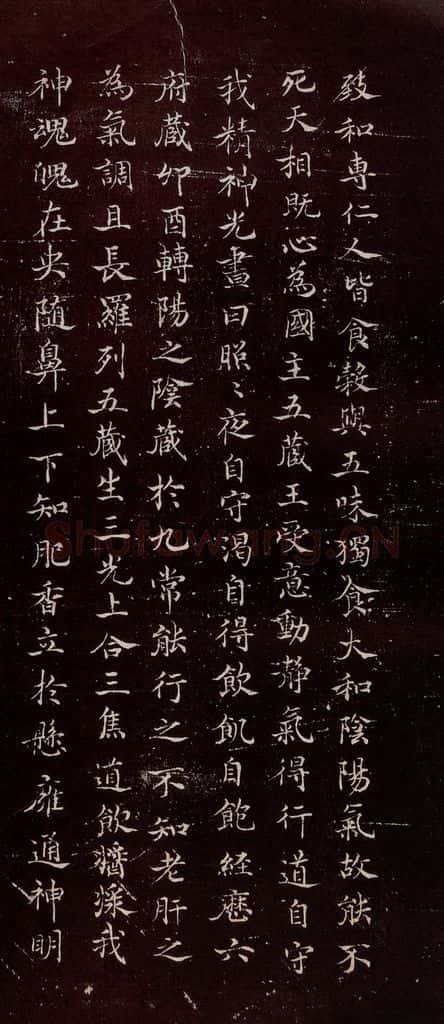 致和專仁人皆食穀與五味獨食大和陰陽氣故能不
死天相既心為國主五蔵王受意動瀞氣得行道自守
我精神光晝日照〻夜自守渴自得飲飢自飽經歷六
府蔵卯酉轉陽之陰蔵於九常能行之不知老肝之
為氣調且長羅列五蔵生三光上合三焦道飲醬漿我
神魂魄在央随鼻上下知肥香立於懸廱通神明
Shufawang.CN